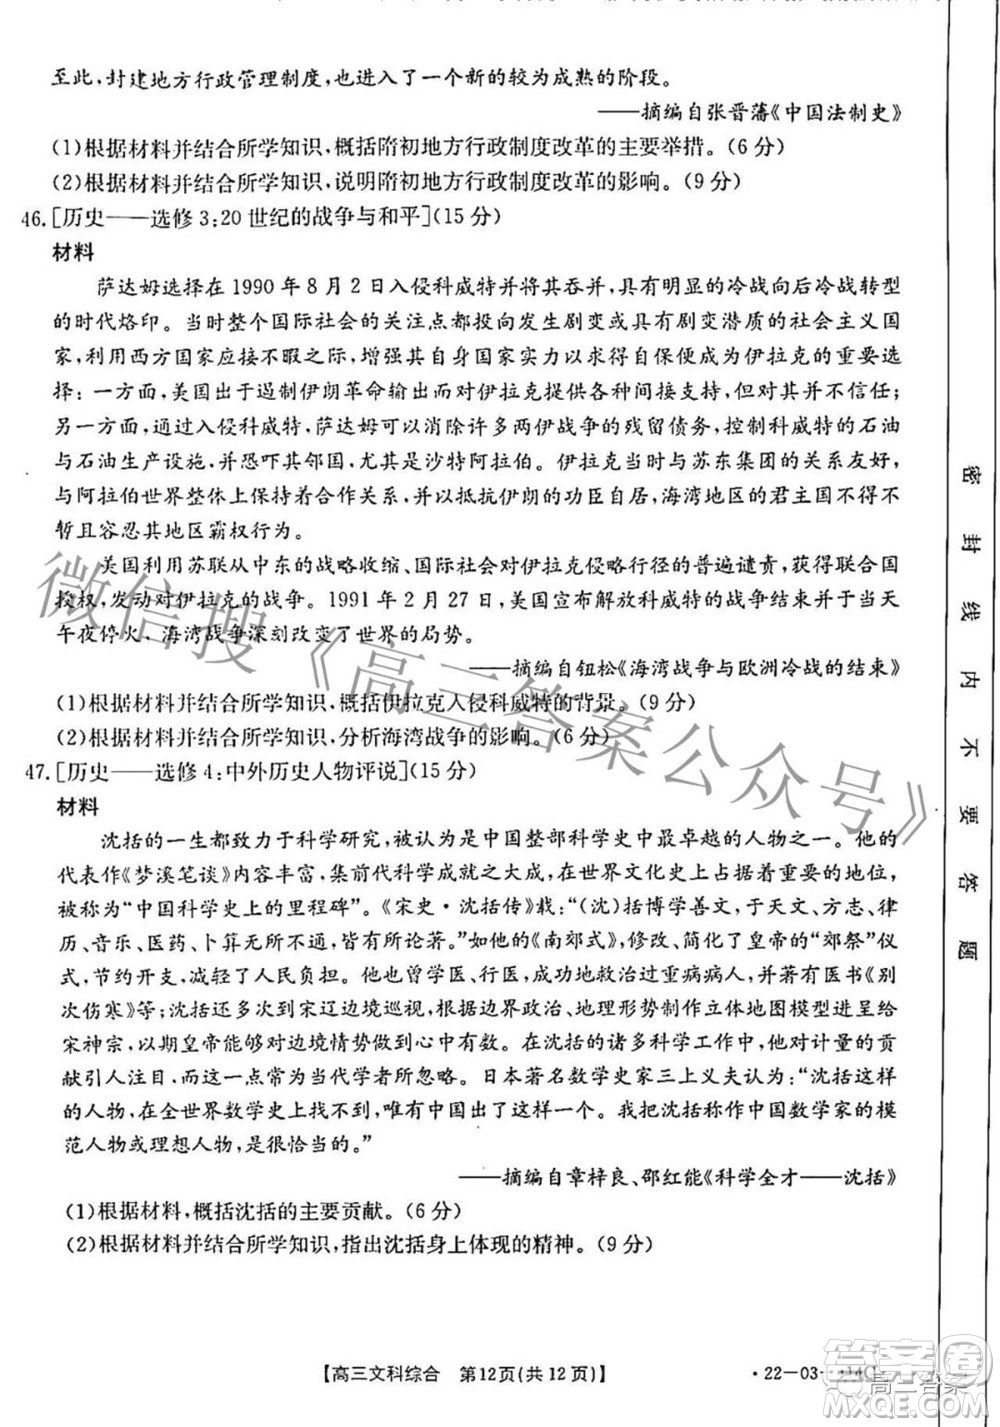 至此,封建地方行政管理制度,也进入了一个新的较为成熟的阶段。
——摘编自张晋藩《中国法制史》
(1)根据材料并结合所学知识,概括隋初地方行政制度改革的主要举措。(6分)
(2)根据材料并结合所学知识,说明隋初地方行政制度改革的影响。(9分)
46.[历史——选修3:20世纪的战争与和平](15分)
材料
萨达姆选择在1990年8月2日入侵科威特并将其吞并,具有明显的冷战向后冷战转型
的时代烙印。当时整个国际社会的关注点都投向发生剧变或具有剧变潜质的社会主义国
家,利用西方国家应接不暇之际,增强其自身国家实力以求得自保便成为伊拉克的重要选
择:一方面,美国出于遏制伊朗革命输出而对伊拉克提供各种间接支持,但对其有所保留;
另一方面,通过入侵科威特,萨达姆可以消除许多两伊战争的残留债务,控制科威特的石油
与石油生产设施,并恐吓其邻国,尤其是沙特阿拉伯。伊拉克当时与苏东集团的关系友好,
与阿拉伯世界整体上保持着合作关系,并以抵抗伊朗的功臣自居,海湾地区的君主国不得不
暂且容忍其地区霸权行为。
美国利用苏联从中东的战略收缩、国际社会对伊拉克侵略行径的普遍谴责,获得联合国
授权,发动对伊拉克的战争。1991年2月27日,美国宣布解放科威特的战争结束并于当天
午夜停火,海湾战争深刻改变了世界的局势。
——摘编自钮松《海湾战争与欧洲冷战的结束》
(1)根据材料并结合所学知识,概括伊拉克入侵科威特的背景。(9分)
(2)根据材料并结合所学知识,分析海湾战争的影响。(6分)
47.[历史——选修4:中外历史人物评说](15分)
材料
沈括的一生都致力于科学研究,被认为是中国整部科学史中最卓越的人物之一。他的
代表作《梦溪笔谈》内容丰富,集前代科学成就之大成,在世界文化史上有着重要的地位,
被称为“中国科学史上的里程碑”。《宋史·沈括传》载:“(沈)括博学善文,于天文、方志、律
历、音乐、医药、卜算无所不通,皆有所论著。”如他的《南郊式》,修改、简化了皇帝的“郊祭”仪
式,节约开支,减轻了人民负担。他也曾学医、行医,成功地救治过重病病人,并有医书《别
次伤寒》等;沈括还多次到宋辽边境巡察,根据山川道路、地理形势制作立体地图模型进献给
宋神宗,以期皇帝能够对边境情势做到心中有数。在沈括的诸多科学工作中,他对计量的贡
献引人注目,而这一点常为当代学者所忽略。日本著名数学史家三上义夫认为:“沈括这样
的人物,在全世界数学史上找不到,唯有中国出了这样一个。我把沈括称作中国数学家的模
范人物或理想人物,是很恰当的。”
——摘编自章梓良、邵红能《科学全才——沈括》
(1)根据材料,概括沈括的主要贡献。(6分)
(2)根据材料并结合所学知识,指出沈括身上体现的精神。(9分)
【高三文科综合 第12页(共12页)】
·22—03
密封线内不要答题
微信搜《高三答案公众号》
高三答案